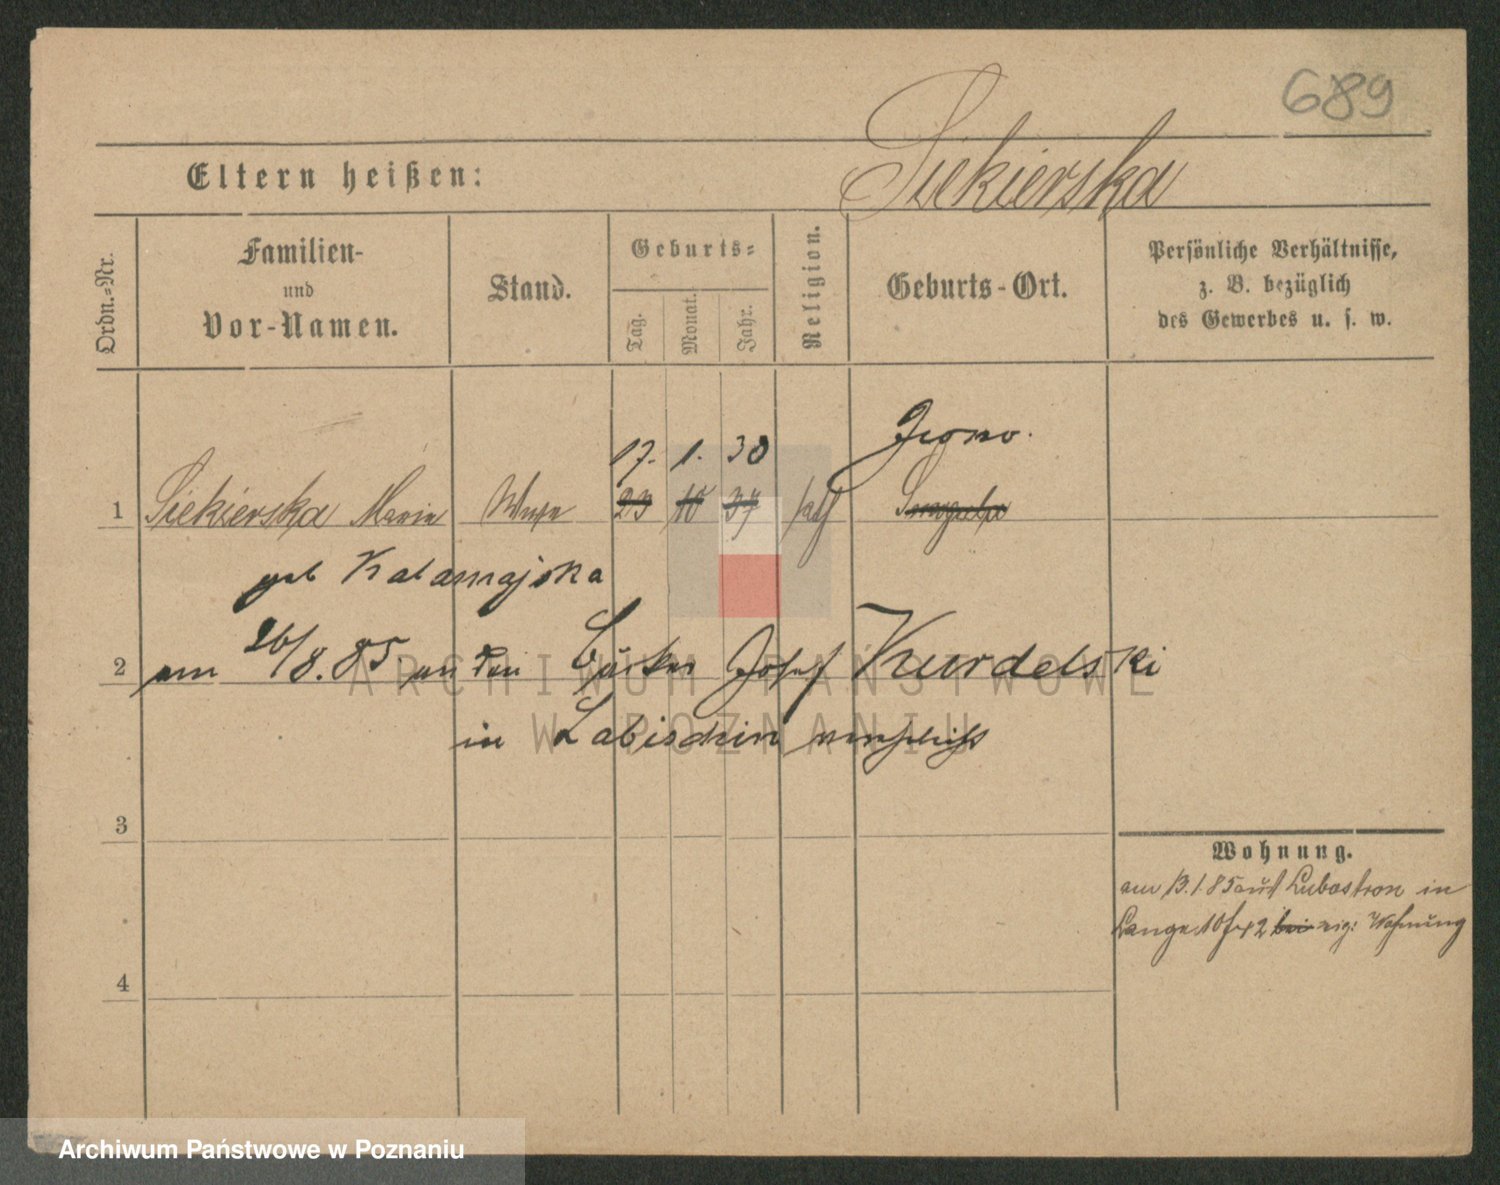 689
Eltern heißen: Siekierska
Ordn.=Nr.
Familien-
und
Vor-Namen.
Stand.
Geburts=
Tag.
Monat.
Jahr.
Religion.
Geburts-Ort.
Persönliche Verhältnisse,
z. B. bezüglich
des Gewerbes u. s. w.
17. 1. 30
1 Siekierska Marie 23 10 37 kath
geb Kalamajska
2 am 26/8.85. an den Bäcker Josef Kurdelski
in Labischin verehelicht
3
4
Wohnung.
am 13.1.85 aus Lubostron in
Lange 2 bei eig: Wohnung
ARCHIWUM PAŃSTWOWE
W POZNANIU
Archiwum Państwowe w Poznaniu